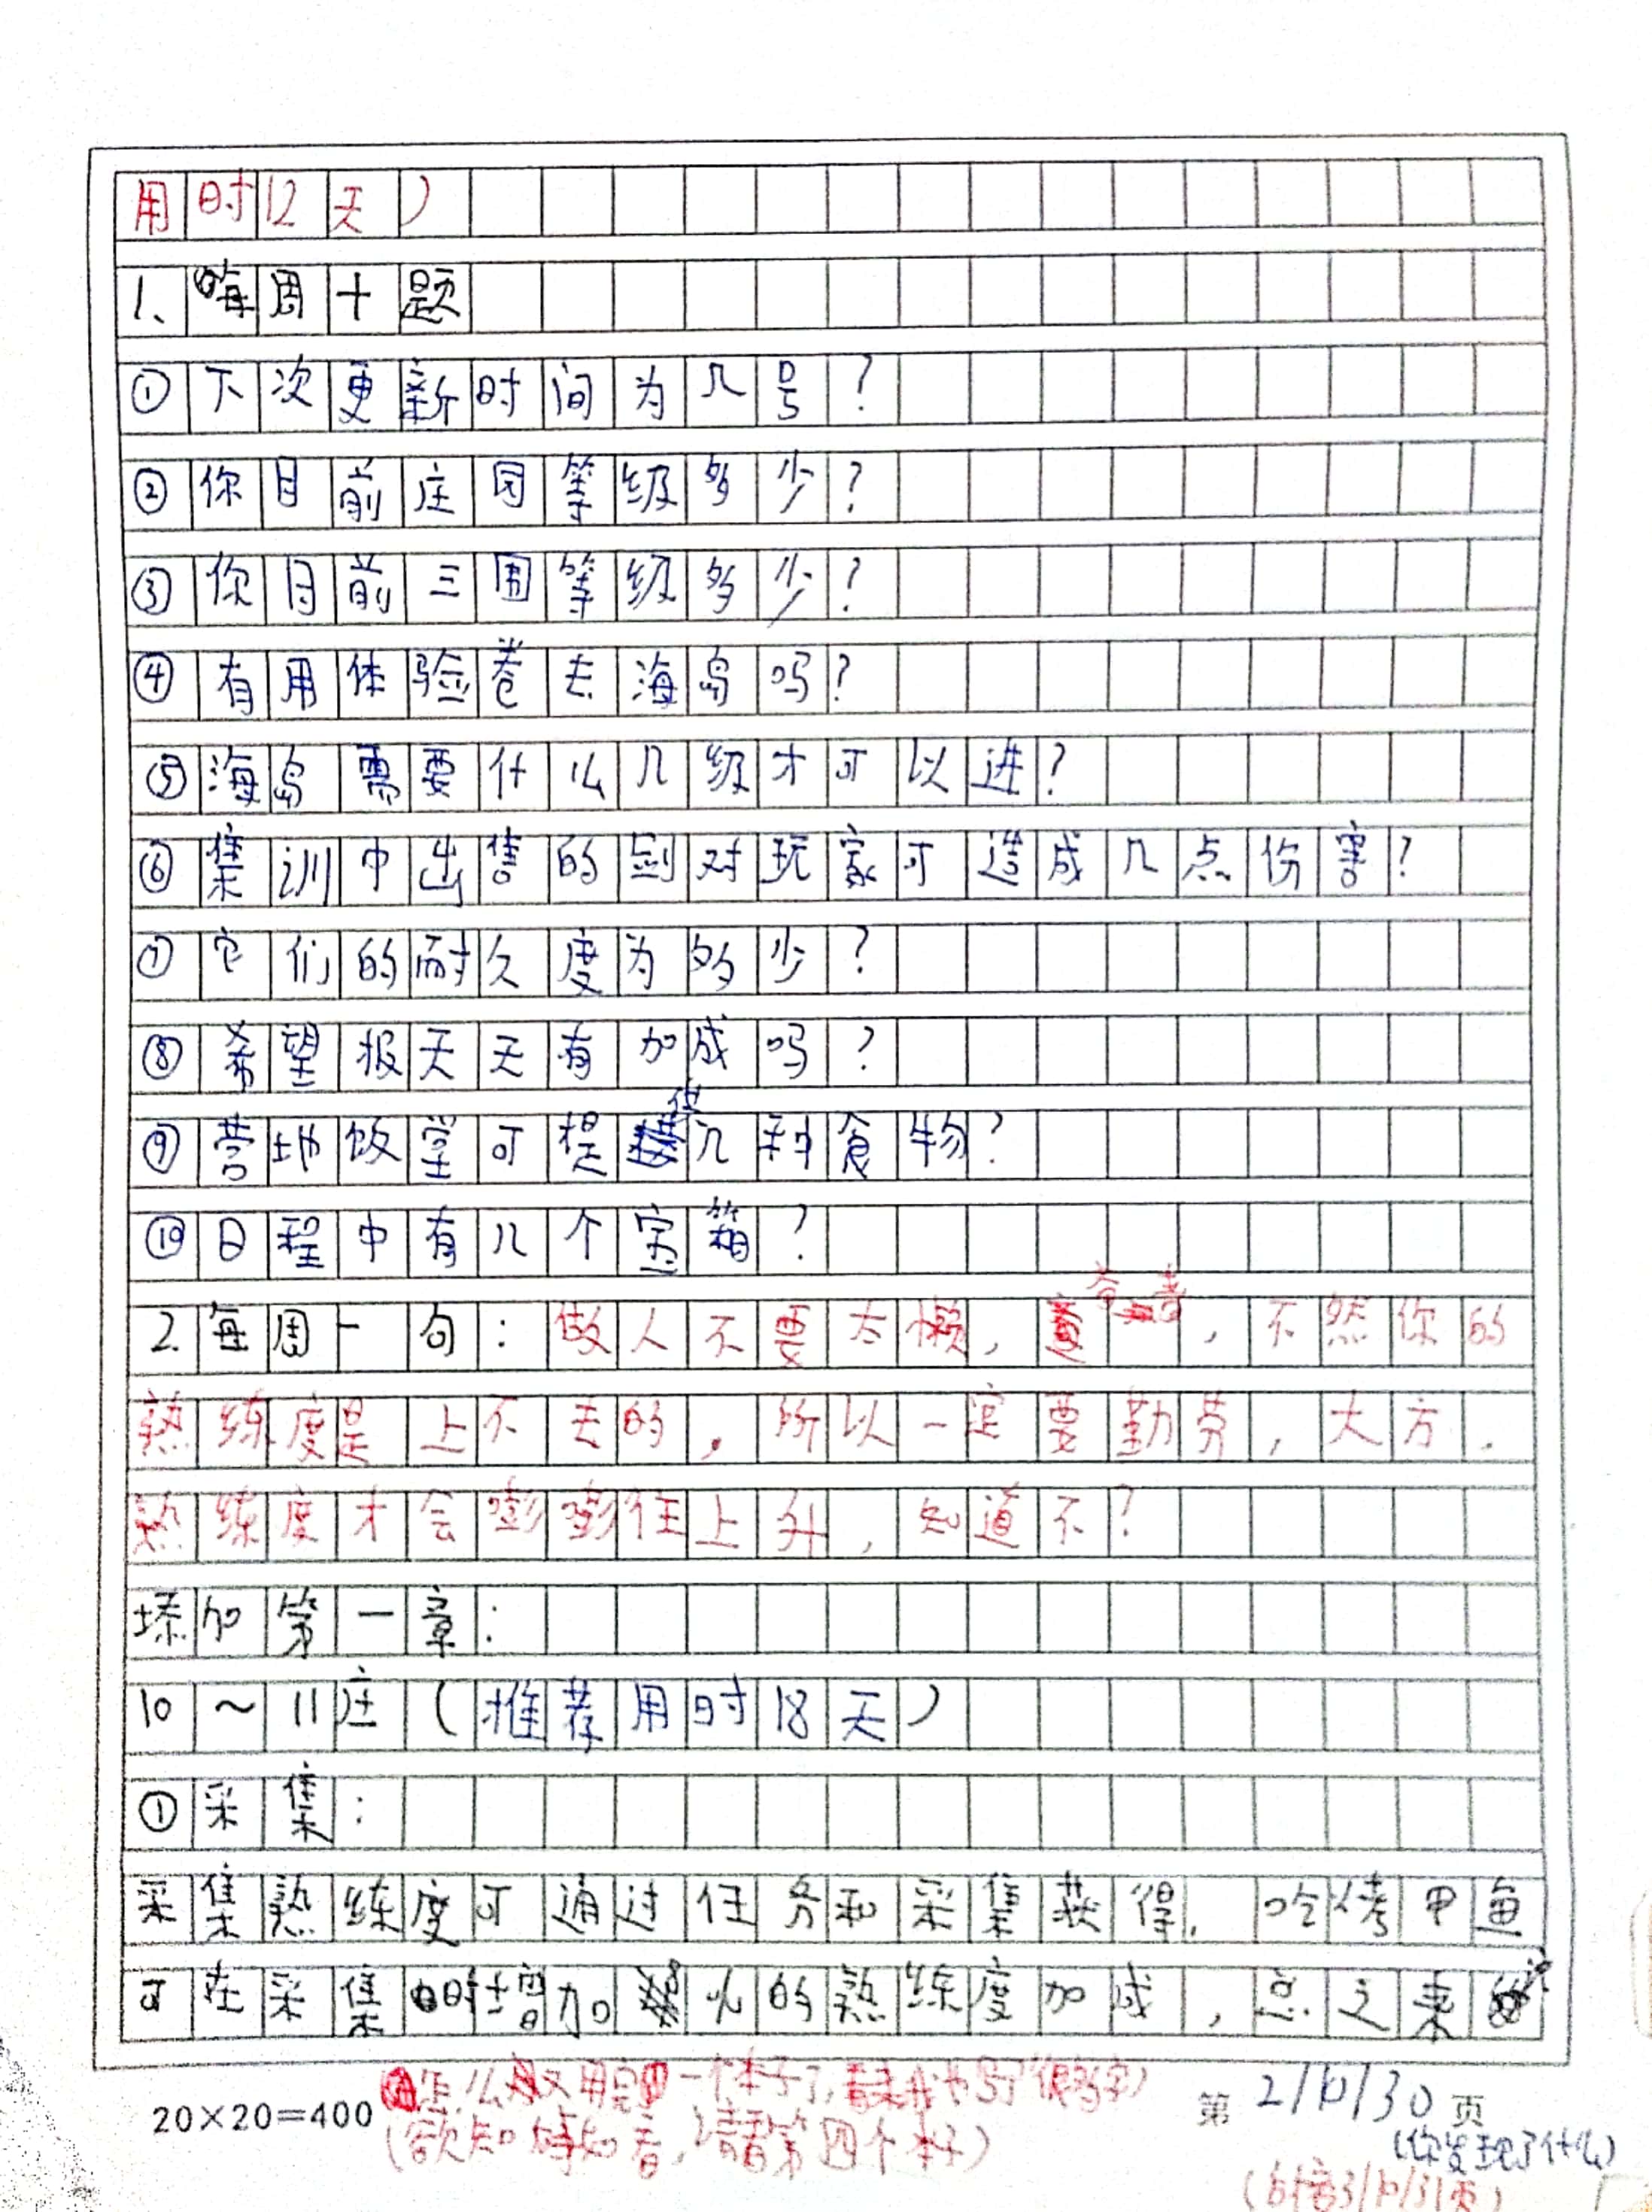 用时12天）
1、每周十题
①下次更新时间为几号？
②你目前庄园等级多少？
③你目前三围等级多少？
④有用体验卷去海岛吗？
⑤海岛需要什么几级才可以进？
⑥集训中出售的剑对玩家可造成几点伤害？
⑦它们的耐久度为多少？
⑧希望报天天有加成吗？
⑨营地饭堂可提供几种食物？
⑩日程中有几个宝箱？
2.每周一句：做人不要太懒，，不然你的
熟练度是上不去的，所以一定要勤劳，大方.
熟练度才会嘭嘭往上升，知道不？
添加第一章：
10～11庄（推荐用时18天）
①采集：
采集熟练度可通过任务和采集获得.吃烤甲鱼
可在采集时增加%的熟练度加成，总之来说
怎么又用完一个本子了，看来我书写了很多字）
（欲知详知看，请看第四个本子）
20×20=400
第2/10/30页
（你发现了什么）
3/10/31页）